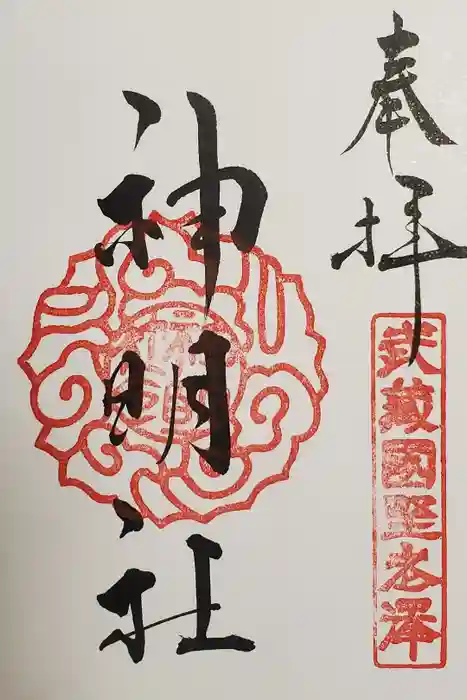 奉拝
武蔵國埜老澤
神明社